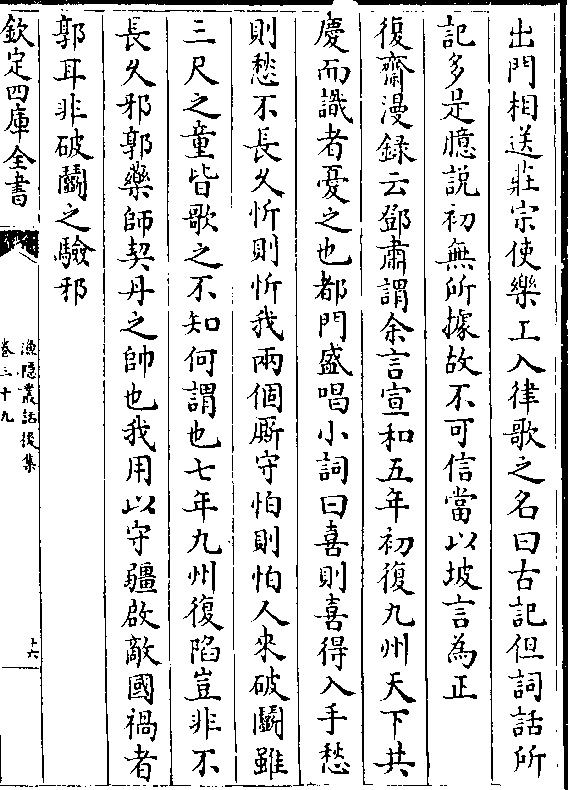 出門相送莊宗使樂工入律歌之名曰古記但詞話所
記多是臆說初無所據故不可信當以坡言為正
復齋漫録云鄧肅謂余言宣和五年初復九州天下共
慶而識者憂之也都門盛唱小詞曰喜則喜得入手愁
則愁不長久忻則忻我兩個厮守怕則怕人來破鬬雖
三尺之童皆歌之不知何謂也七年九州復陷豈非不
長久邪郭藥師契丹之帥也我用以守疆啟敵國禍者
郭耳非破鬬之驗邪
欽定四庫全書
漁隱叢話後集
卷三十九
十六